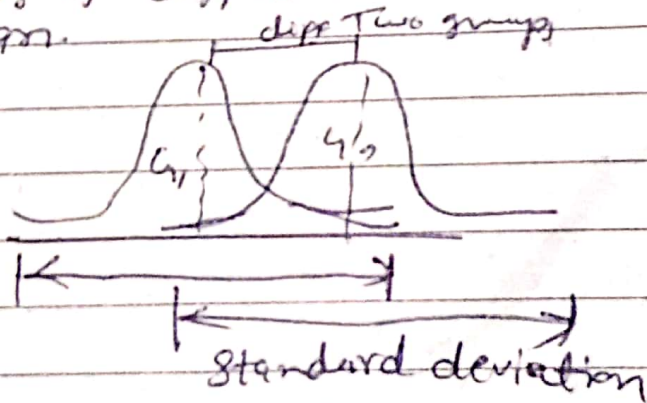 diff Two groups
G1
G2
Standard deviation